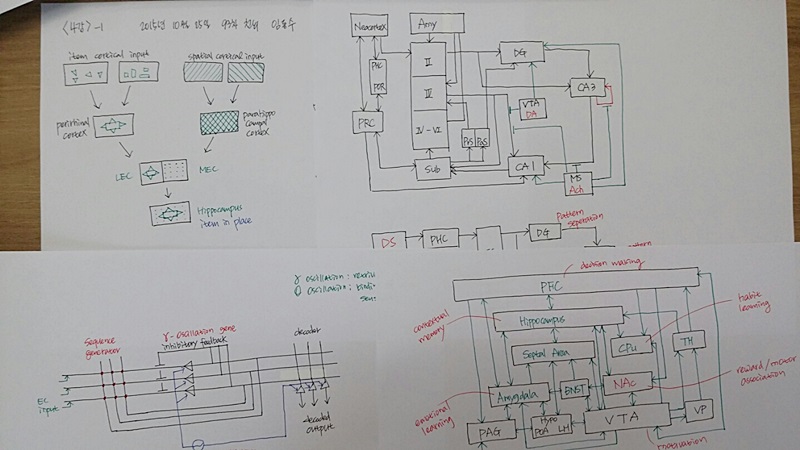 <4강>-1 2015년 10월 25일 93차
item cortical input
spatial cortical input
perirhinal
cortex
parahippo
campal
cortex
LEC
MEC
Hippocampus
item in place
Neocortex
Amy
PHC
POR
PRC
II
IV
IV-VI
Sub
PrS
PaS
DG
CA3
VTA
DA
CA1
MS
Ach
DS
PHC
DG
Pattern
seperation
γ oscillation :
θ oscillation :
Sequence
generator
γ-oscillation gene
inhibitory feedback
decoder
EC
input
decoded
output
decision making
PFC
contextual
memory
Hippocampus
habit
learning
Septal Area
CPu
TH
reward/motor
association
Amygdala
BNST
NAc
emotional
learning
PAG
Hypo
POA LH
VTA
VP
motivation